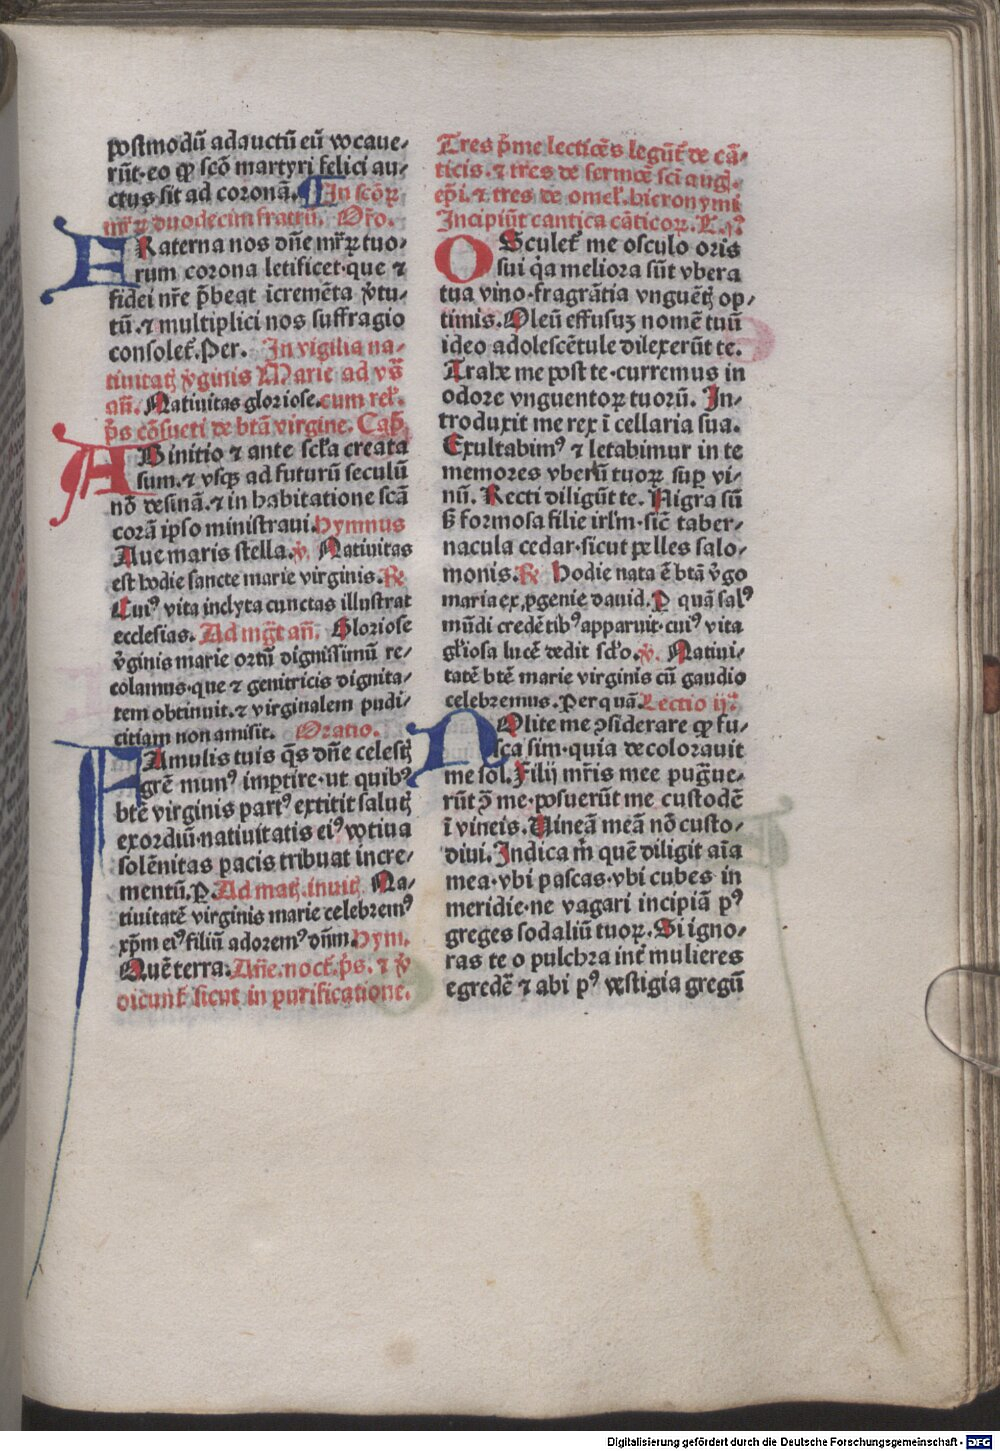 postmodū adauctū eū vocaue-
rūt. eo ꝙ scō martyri felici au-
ctus sit ad coronā. ¶ In scōꝝ
mr̄ꝝ duodecim fratrū. Or̄o.
FRaterna nos dn̄e mr̄ꝝ tuo-
rum corona letificet. que ⁊
fidei nr̄e p̄beat icremēta v̓tu-
tū. ⁊ multiplici nos suffragio
consoleť. Per. In vigilia na-
tiuitatꝭ v̓ginis Marie ad vs̄
an̄. Natiuitas gloriose. cum relꝭ.
p̄s cōsueti de btā virgine. Cap̄.
AB initio ⁊ ante scl̓a creata
sum. ⁊ vsqꝫ ad futurū seculū
nō desinā. ⁊ in habitatione scā
corā ipso ministraui. Hymnus
Aue maris stella. v̓. Natiuitas
est hodie sancte marie virginis. ℟
Cuiꝰ vita inclyta cunctas illustrat
ecclesias. Ad mg̅t an̄. Gloriose
v̓ginis marie ortū dignissimū re-
colamus. que ⁊ genitricis dignita-
tem obtinuit. ⁊ virginalem pudi-
citiam non amisit. Oratio.
FAmulis tuis q̄s dn̄e celestꝭ
grē munꝰ imꝑtire. vt quibꝰ
btē virginis partꝰ extitit salutꝭ
exordiū. natiuitatis eiꝰ votiua
solēnitas pacis tribuat incre-
mentū. P. Ad matꝭ. inuitꝭ. Na-
tiuitatē virginis marie celebremꝰ
xp̄m eiꝰ filiū adoremꝰ dn̄m. Hym.
Quē terra. An̄e. nocť. p̄s. ⁊ v̓
dicunť sicut in purificatione.
Tres p̄me lectiōes legūť de cā-
ticis. ⁊ tres de sermōe sci augꝭ.
ep̄i. ⁊ tres de omelꝭ. hieronymi
Incipiūt cantica cāticoꝝ. L. jꝰ
OSculeť me osculo oris
sui q̓a meliora sūt vbera
tua vino. fragrātia vnguētꝭ op-
timis. Oleū effusuꝫ nomē tuū
ideo adolescētule dilexerūt te.
Trahe me post te. curremus in
odore vnguentoꝝ tuorū. In-
troduxit me rex ī cellaria sua.
Exultabimꝰ ⁊ letabimur in te
memores vberū tuoꝝ suꝑ vi-
nū. Recti diligūt te. Nigra sū
ß formosa filie irlm̄. sic̄ taber-
nacula cedar. sicut pelles salo-
monis. ℟ Hodie nata ē btā v̓go
maria ex ꝓgenie dauid. P quā salꝰ
mūdi credētibꝰ apparuit. cuiꝰ vita
gl̓iosa lucē dedit scl̓o. v̓. Natiui-
tatē btē marie virginis cū gaudio
celebremus. Per quā. Lectio ijꝰ
NOlite me ꝯsiderare ꝙ fu-
sca sim. quia decolorauit
me sol. Filij mr̄is mee pug̅ue-
rūt ꝯ̄ me. posuerūt me custodē
ī vineis. Vineā meā nō custo-
diui. Indica m̓ quē diligit aīa
mea. vbi pascas. vbi cubes in
meridie. ne vagari incipiā pꝰ
greges sodaliū tuoꝝ. Si igno-
ras te o pulchra inť mulieres
egredē ⁊ abi pꝰ vestigia gregū
Digitalisierung gefördert durch die Deutsche Forschungsgemeinschaft - DFG